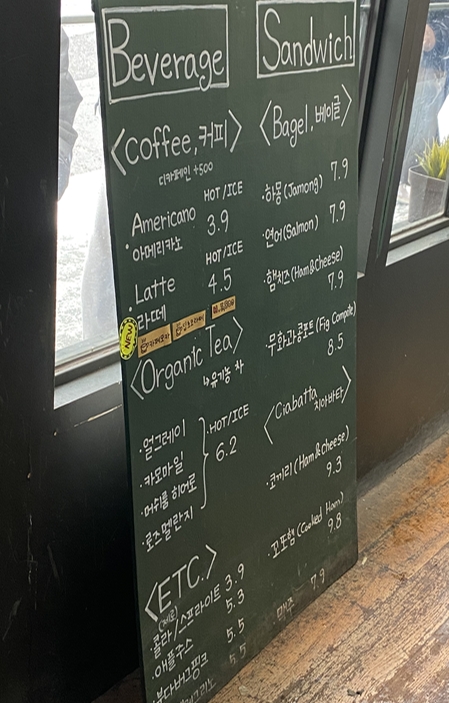 Beverage
<Coffee, 커피>
디카페인 +500
HOT/ICE
Americano 3.9
· 아메리카노
HOT/ICE
Latte 4.5
· 라떼
NEW
<Organic Tea>
↳ 유기농 차
· 얼그레이
· 카모마일
· 머쉬룸 히어로
· 로즈멜란지
HOT/ICE
6.2
<ETC.>
(제로)
· 콜라/스프라이트 3.9
· 애플쥬스 5.3
· 부다버그핑크 5.5
5.5
· 맥주 7.9
Sandwich
<Bagel, 베이글>
· 하몽 (Jamong) 7.9
· 연어 (Salmon) 7.9
· 햄치즈 (Ham&Cheese)
7.9
· 무화과콩포트 (Fig Compote)
8.5
<Ciabatta
치아바타>
· 코끼리 (Ham&Cheese)
9.3
(Cooked Ham)
9.8